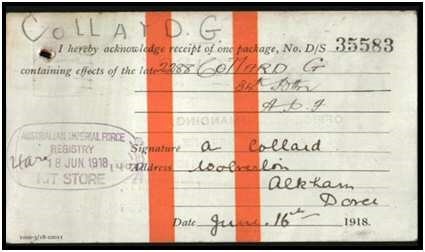 COLLARD. G.
I hereby acknowledge receipt of one package, No. D/S 35583
containing effects of the late 2288 Collard G
A.I.F
AUSTRALIAN IMPERIAL FORCE
REGISTRY
18 JUN 1918
KIT STORE
Signature a Collard
Address Wolverton
Alkham
Dover
Date June 16th 1918.